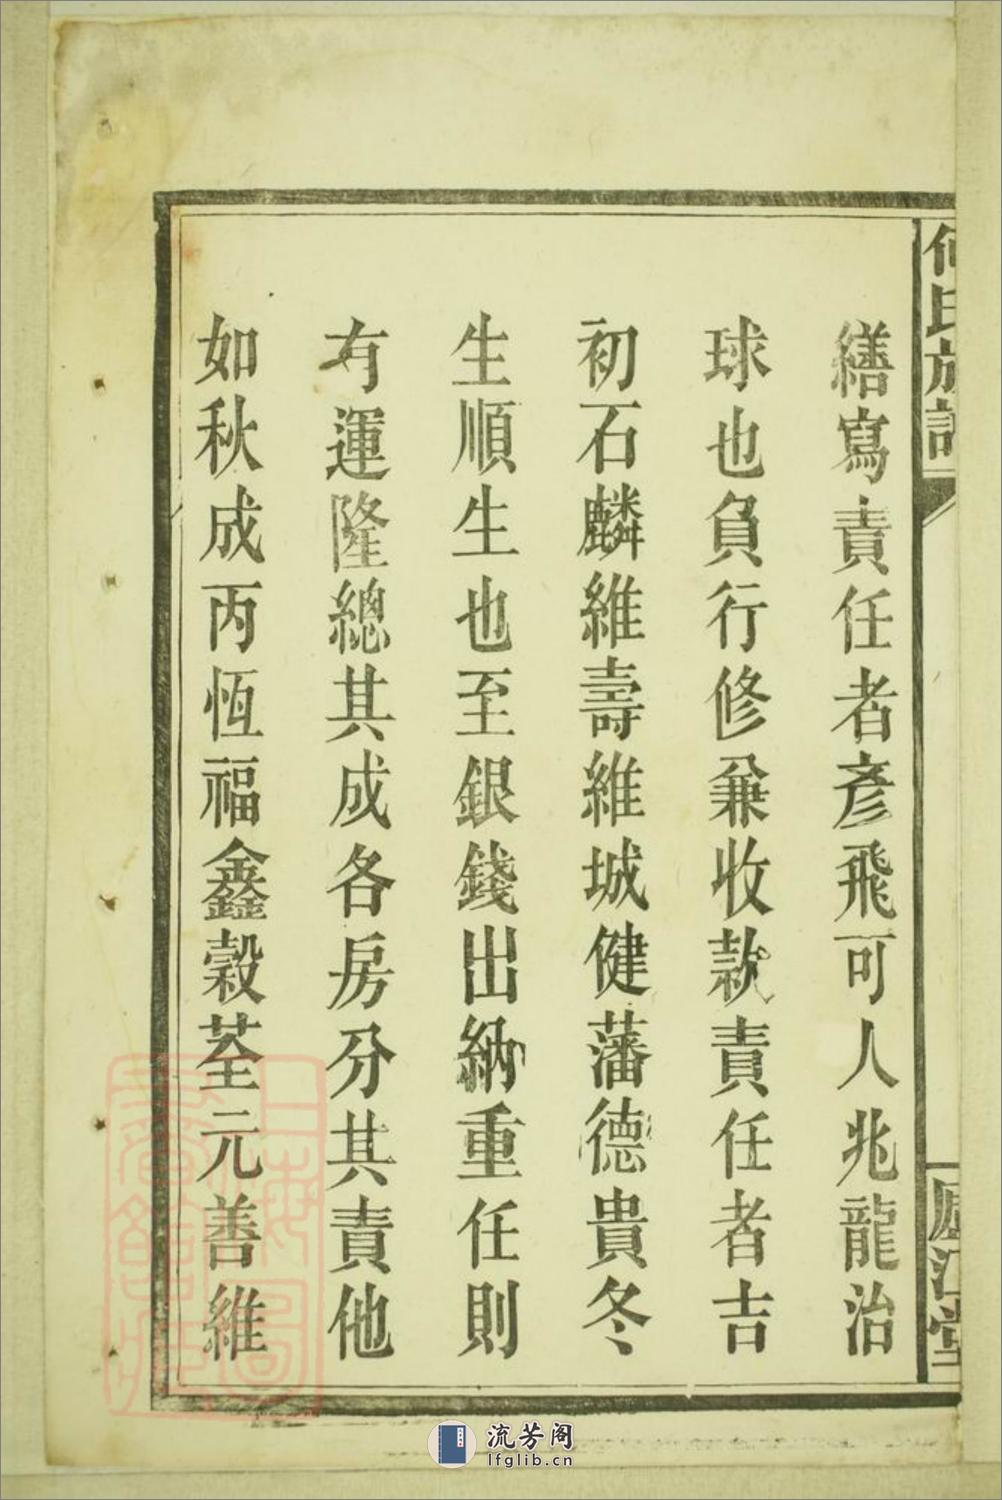 何氏族譜
廬江堂
繕寫責任者彥飛可人兆龍治
球也負行修兼收款責任者吉
初石麟維壽維城健藩德貴冬
生順生也至銀錢出納重任則
有運隆總其成各房分其責他
如秋成丙恆福鑫穀荃元善維
流芳阁
lfglib.cn